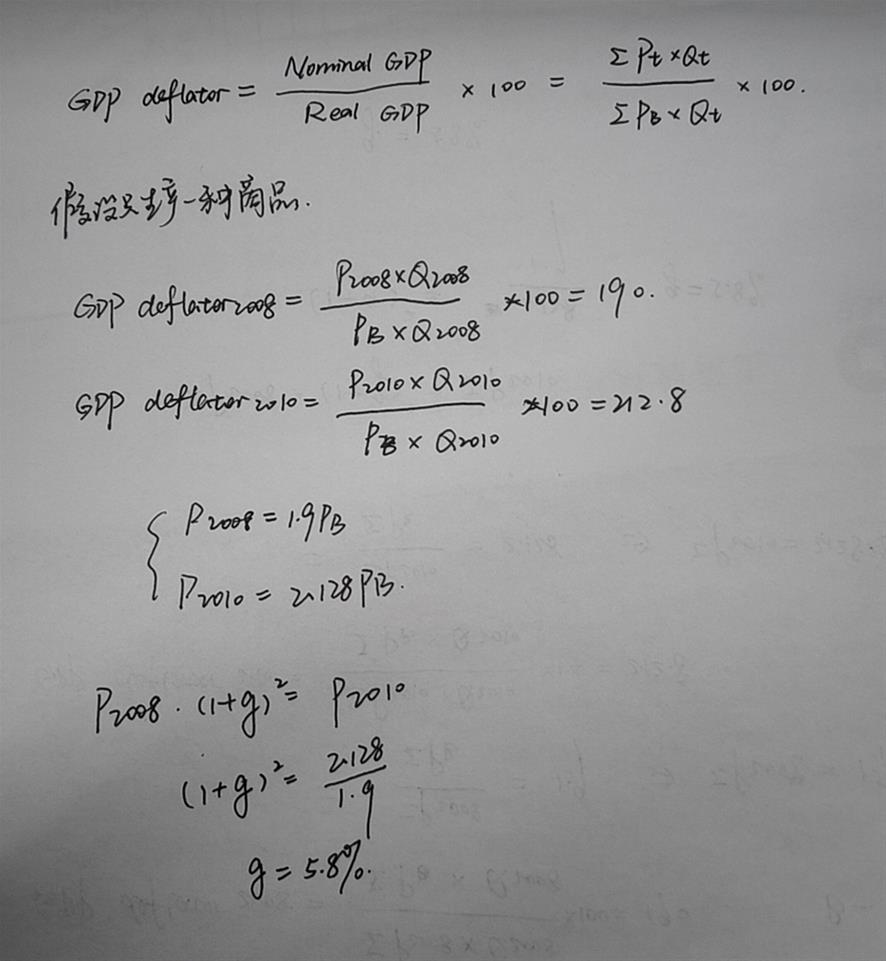 GDP deflator = Nominal GDP / Real GDP × 100 = Σ Pt × Qt / Σ PB × Qt × 100.
假设只生产一种商品.
GDP deflator2008 = P2008 × Q2008 / PB × Q2008 × 100 = 190.
GDP deflator2010 = P2010 × Q2010 / PB × Q2010 × 100 = 212.8
P2008 = 1.9PB
P2010 = 2.128PB.
P2008 · (1+g)² = P2010
(1+g)² = 2.128 / 1.9
g = 5.8%.